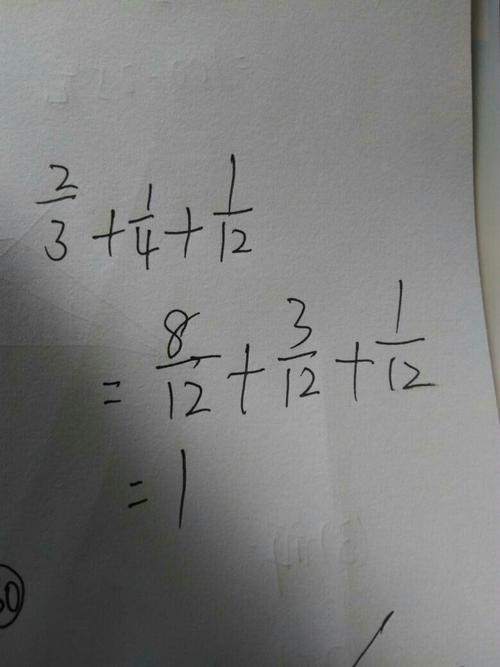 2/3 + 1/4 + 1/12
= 8/12 + 3/12 + 1/12
= 1